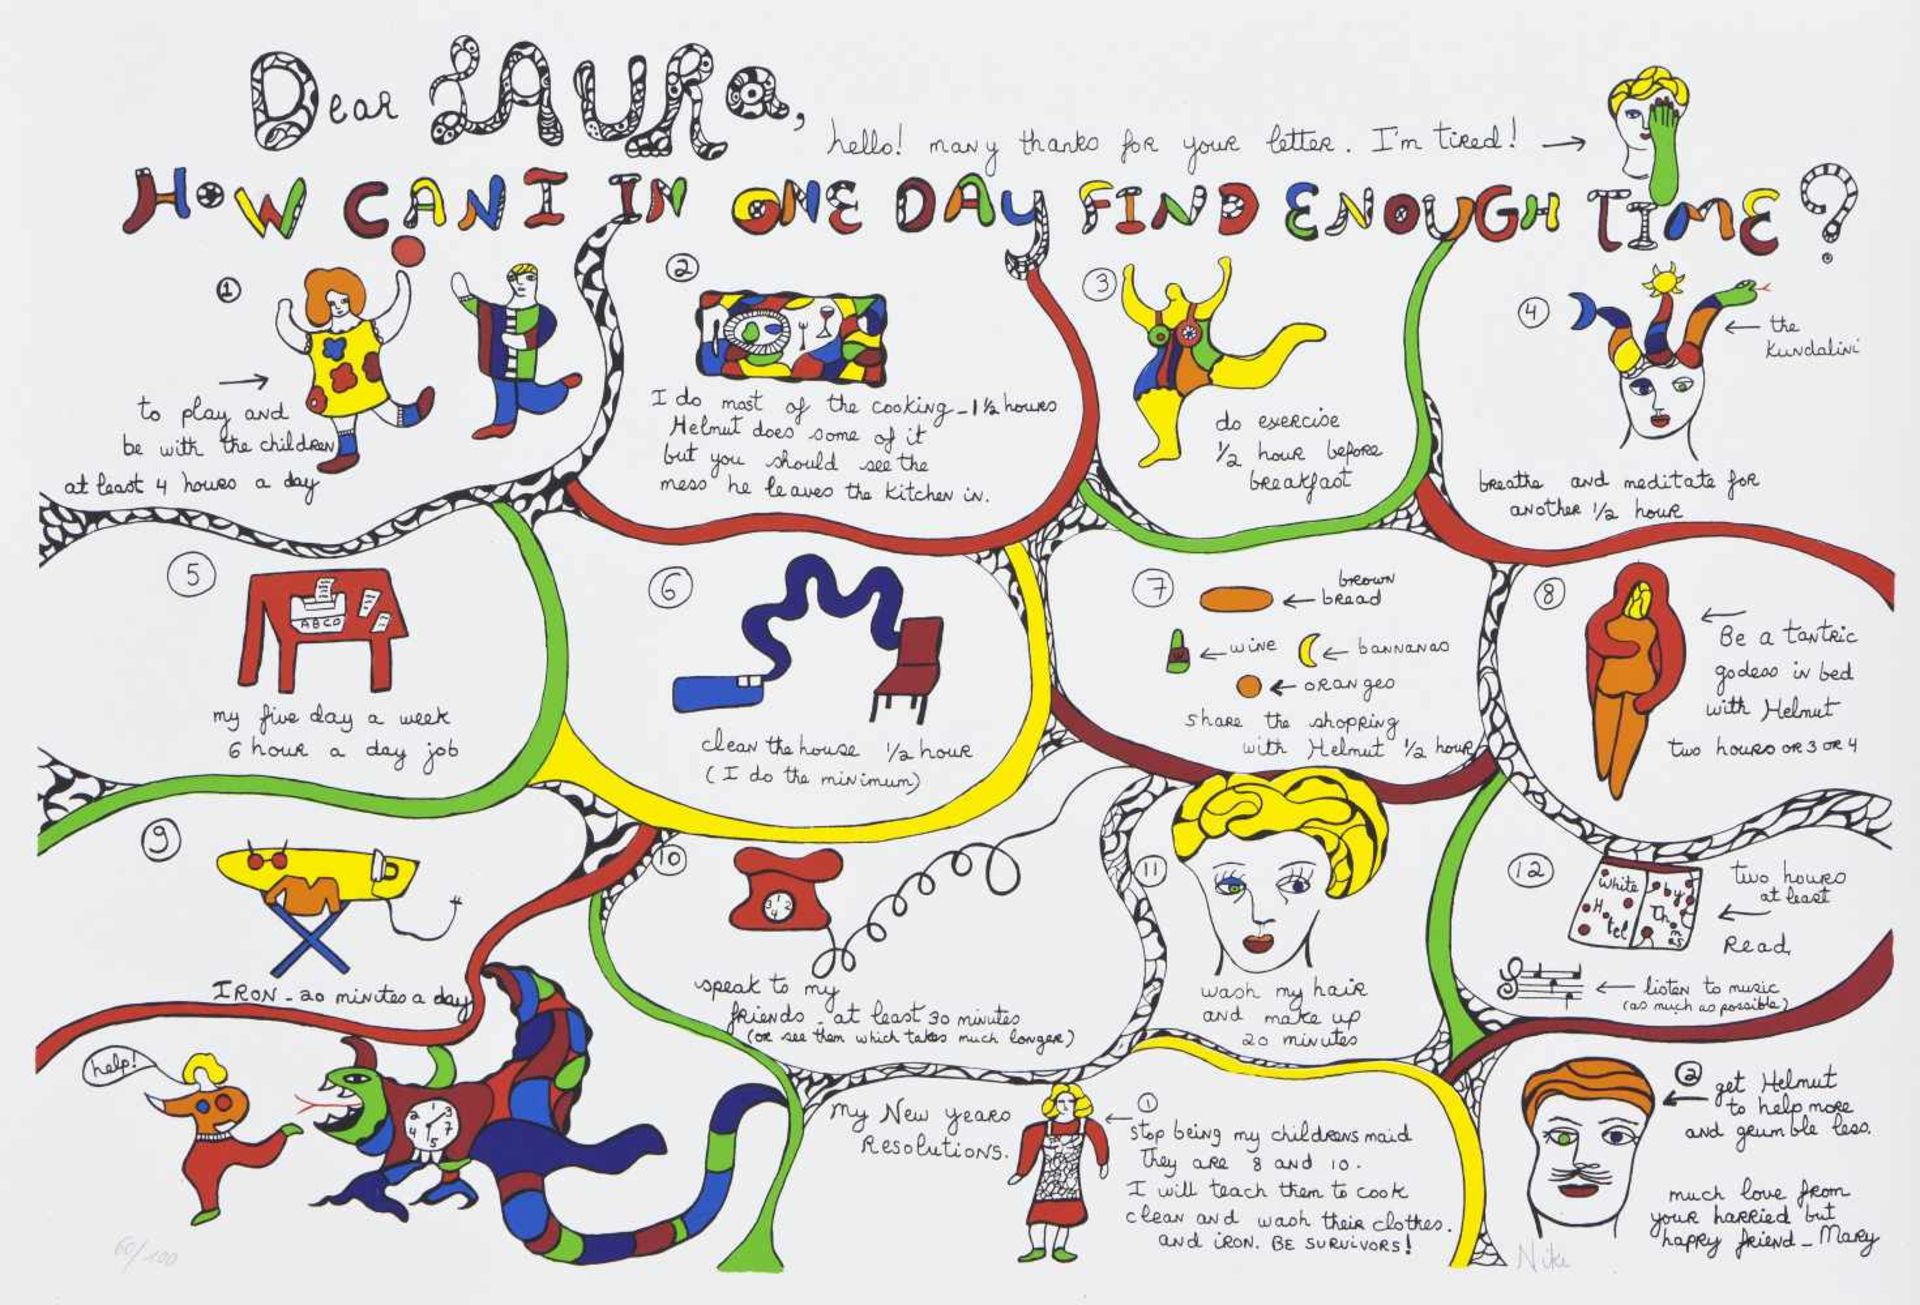 Dear LAURa,
hello! many thanks for your letter. I'm tired! →
HOW CAN I IN ONE DAY FIND ENOUGH TIME?
①
→
to play and
be with the children
at least 4 hours a day
②
I do most of the cooking - 1 ½ hours
Helmut does some of it
but you should see the
mess he leaves the kitchen in.
③
do exercise
½ hour before
breakfast
④
← the
kundalini
breathe and meditate for
another ½ hour
⑤
ABCD
my five day a week
6 hour a day job
⑥
clean the house ½ hour
(I do the minimum)
⑦
← brown
bread
← wine
← bannanas
← oranges
share the shopping
with Helmut ½ hour
⑧
←
Be a tantric
godess in bed
with Helmut
two hours or 3 or 4
⑨
IRON - 20 minutes a day
⑩
3 1 2
4
speak to my
friends - at least 30 minutes
(or see them which takes much longer)
⑪
wash my hair
and make up
20 minutes
⑫
White
Hotel
by
Thomas
two hours
at least
←
Read
← listen to music
(as much as possible)
help!
1
2 3
4 7
5
My New years
Resolutions.
← ①
stop being my childrens maid
They are 8 and 10.
I will teach them to cook
clean and wash their clothes.
and iron. BE SURVIVORS!
②
← get Helmut
to help more
and grumble less.
much love from
your harried but
happy friend - Mary
60/100
Niki